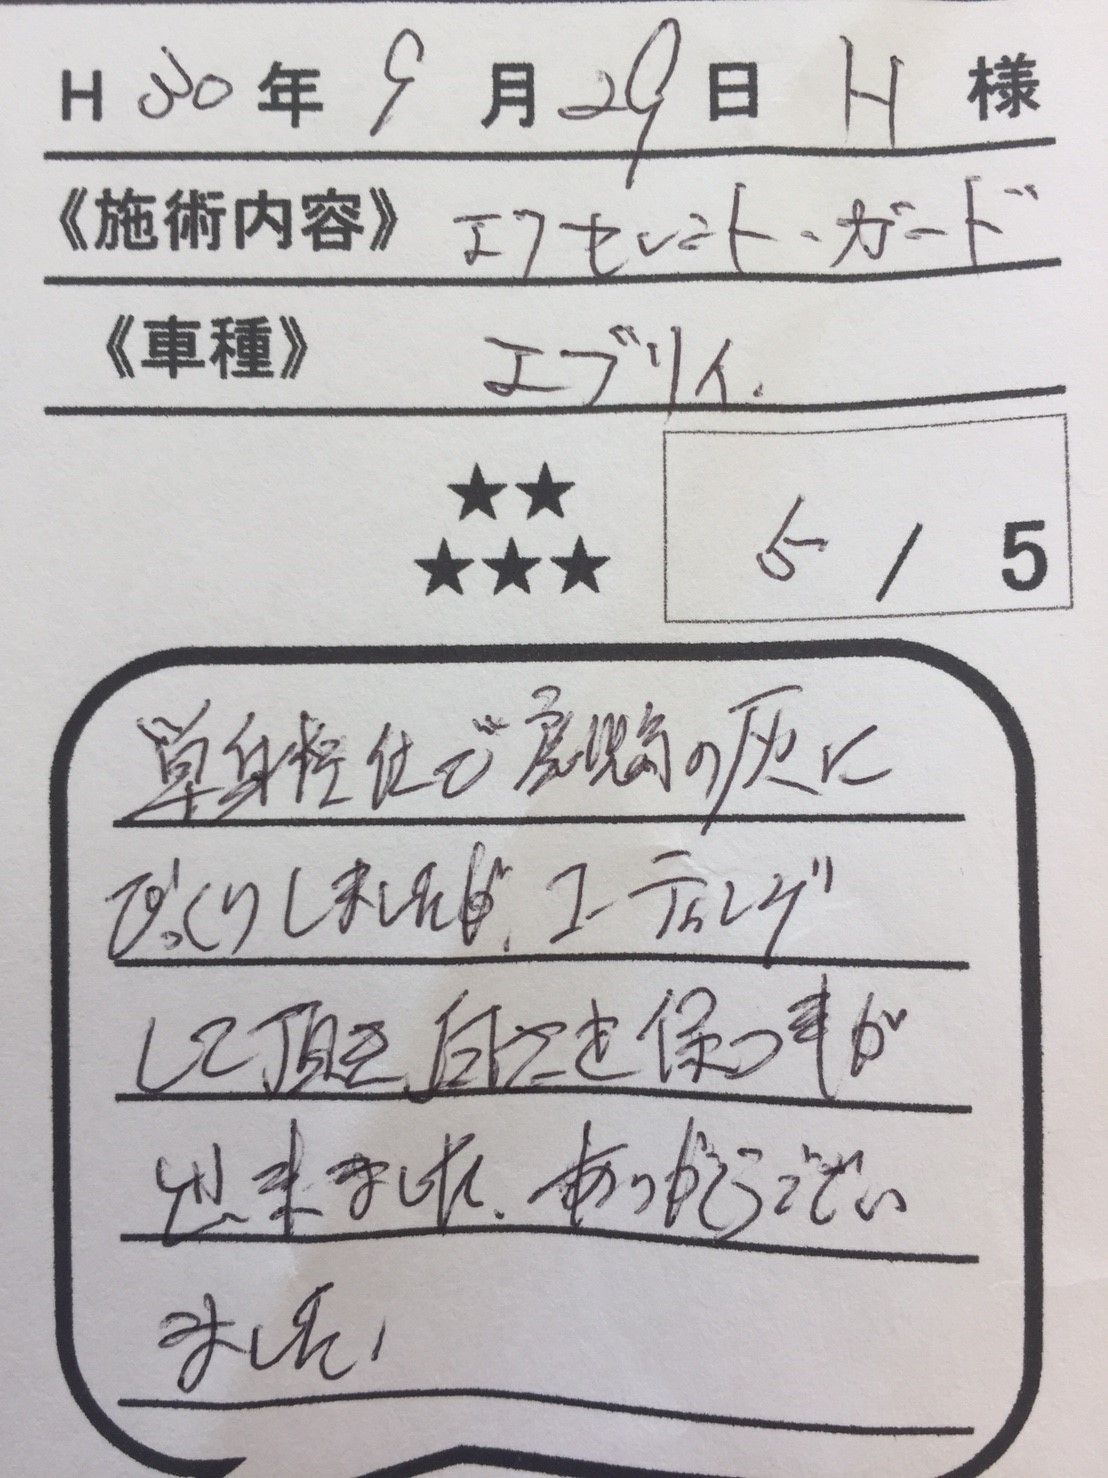 H 30年 9月29日 H 様
《施術内容》 エクセレント・ガード
《車種》 エブリイ.
★★
★★★ 5 / 5
単身赴任で鹿児島の灰に
びっくりしましたが、コーティング
して頂き、白さを保つ事が
出来ました。ありがとうござい
ました。